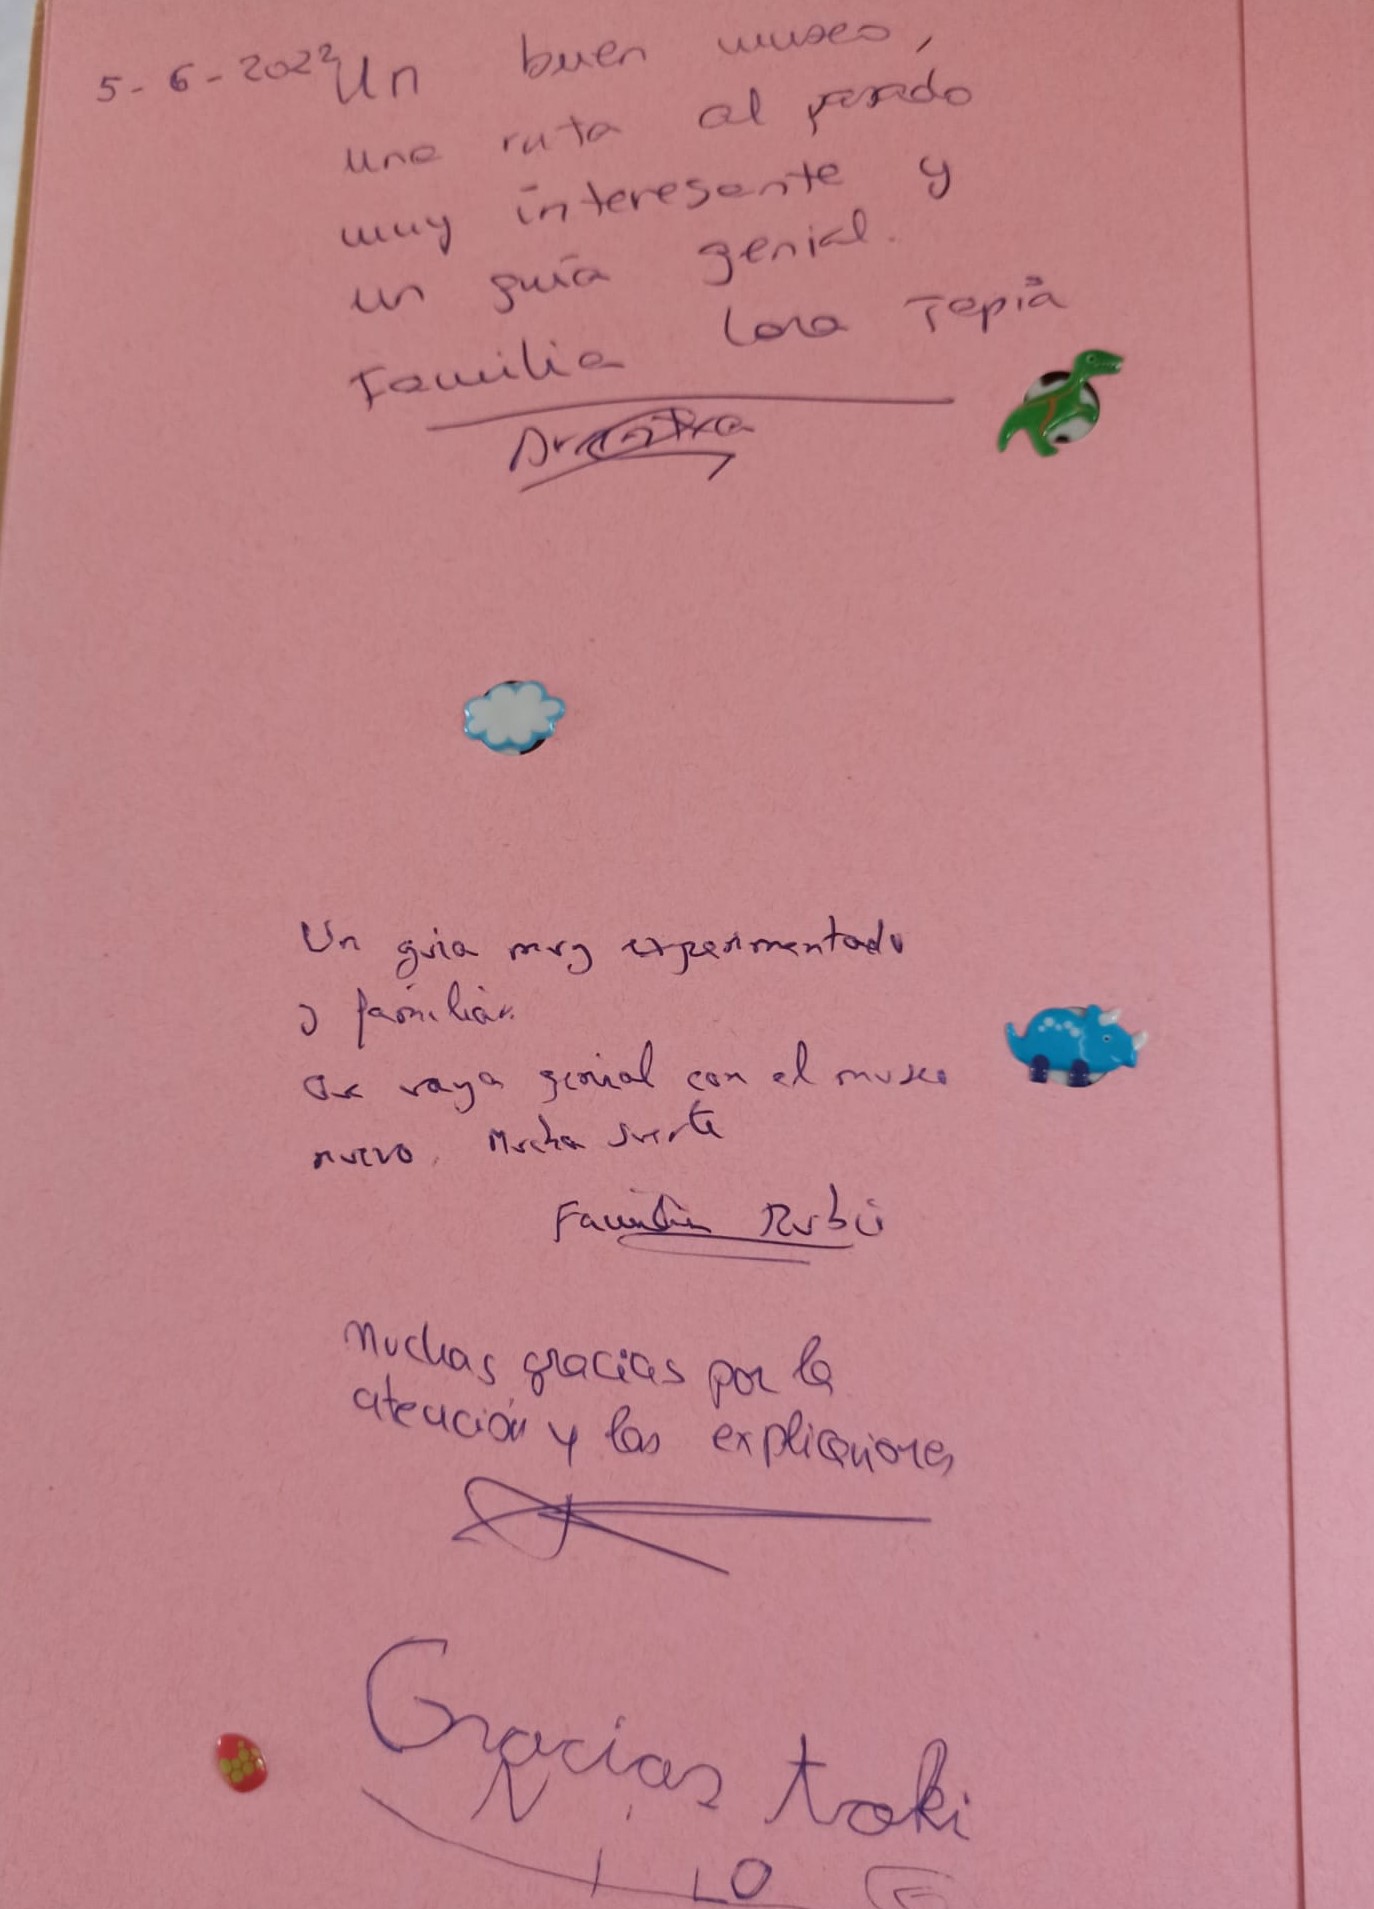 5-6-2022 Un buen museo,
una ruta al pasado
muy interesante y
un guía genial.
Familia Lora Tapia
Un guia muy experimentado
y familiar.
Os vaya genial con el museo
nuevo. Mucha suerte
Familia Rubio
Muchas gracias por la
atención y las explicaciones
Gracias